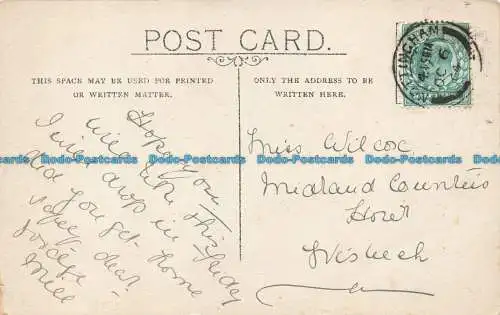 POST CARD.
THIS SPACE MAY BE USED FOR PRINTED
OR WRITTEN MATTER.
ONLY THE ADDRESS TO BE
WRITTEN HERE.
NOTTINGHAM
Hope you
will this Friday
I will drop in
did you get home
safely dear.
Miss Wilcox
Midland Counties
Hotel
Wisbech
Dodo-Postcards Dodo-Postcards Dodo-Postcards Dodo-Postcards Dodo-Postcards Dodo-Postcards